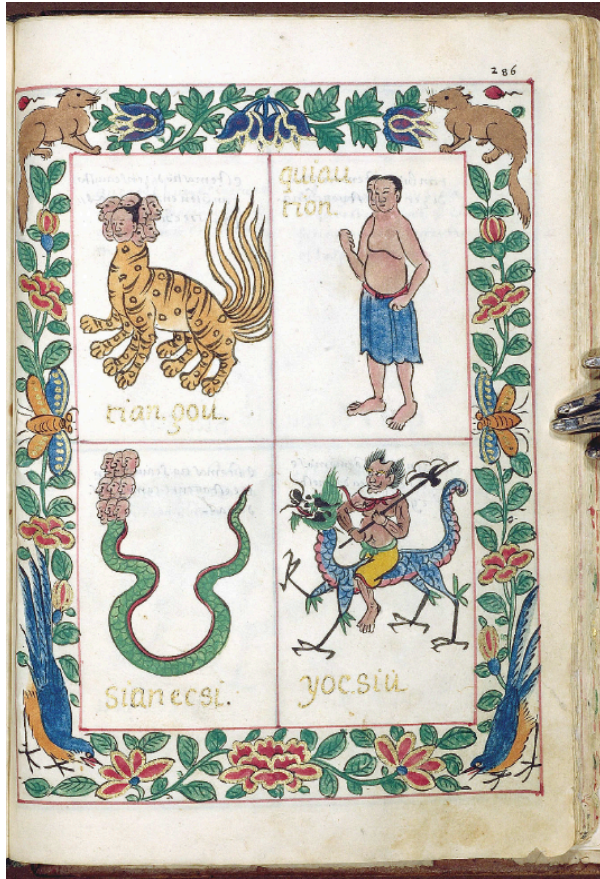 286
quiau
tion.
tian gou.
sianecsi.
yocsiu